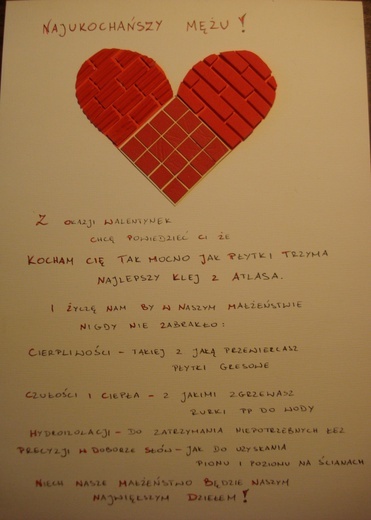 NAJUKOCHAŃSZY MĘŻU !
Z OKAZJI WALENTYNEK
CHCĘ POWIEDZIEĆ CI ŻE
KOCHAM CIĘ TAK MOCNO JAK PŁYTKI TRZYMA
NAJLEPSZY KLEJ Z ATLASA.
I ŻYCZĘ NAM BY W NASZYM MAŁŻEŃSTWIE
NIGDY NIE ZABRAKŁO:
CIERPLIWOŚCI – TAKIEJ Z JAKĄ PRZEWIERCASZ
PŁYTKI GRESOWE
CZUŁOŚCI I CIEPŁA – Z JAKIMI ZGRZEWASZ
RURKI PP DO WODY
HYDROIZOLACJI – DO ZATRZYMANIA NIEPOTRZEBNYCH ŁEZ
PRECYZJI W DOBORZE SŁÓW – JAK DO UZYSKANIA
PIONU I POZIOMU NA ŚCIANACH
NIECH NASZE MAŁŻEŃSTWO BĘDZIE NASZYM
NAJWIĘKSZYM DZIEŁEM !